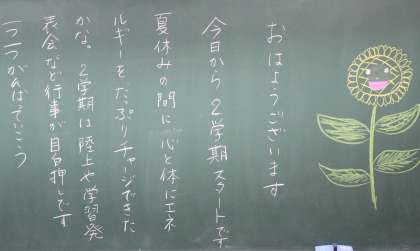 おはようございます
今日から2学期スタートです
夏休みの間に心と体にエネ
ルギーをたっぷりチャージできた
かな。2学期は陸上や学習発
表会など行事が目白押しです
一つ一つがんばっていこう